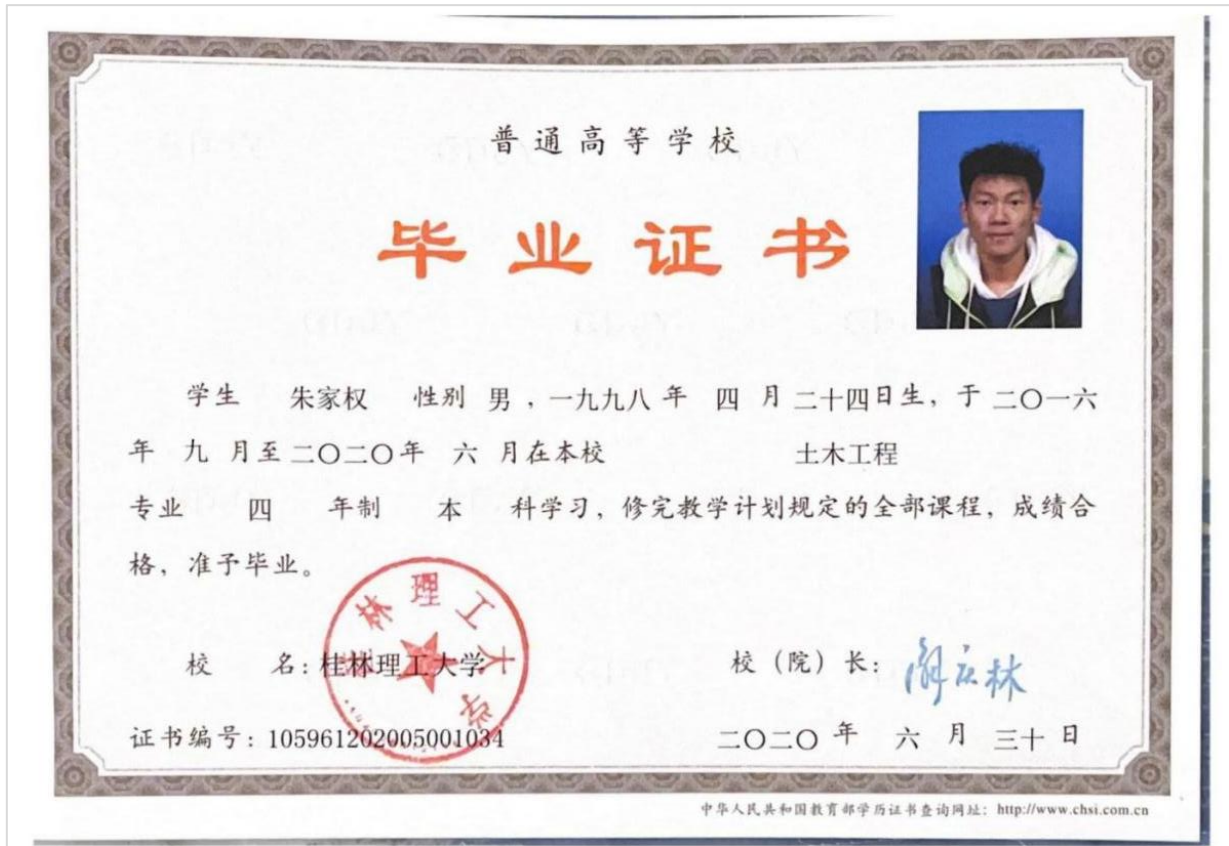 普通高等学校
毕业证书
学生 朱家权 性别 男，一九九八年 四 月二十四日生，于二〇一六
年 九 月至二〇二〇年 六 月在本校 土木工程
专业 四 年制 本 科学习，修完教学计划规定的全部课程，成绩合
格，准予毕业。
桂林理工大学
校 名：桂林理工大学 校（院）长：解庆林
证书编号：105961202005001034 二〇二〇年 六 月 三十日
中华人民共和国教育部学历证书查询网址：http://www.chsi.com.cn